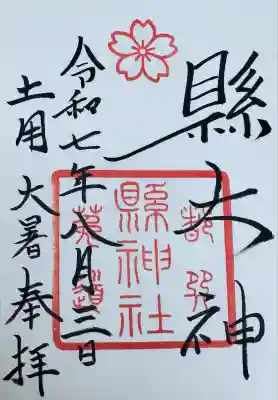 縣大神
令和七年八月三日
土用 大暑 奉拝
縣神社